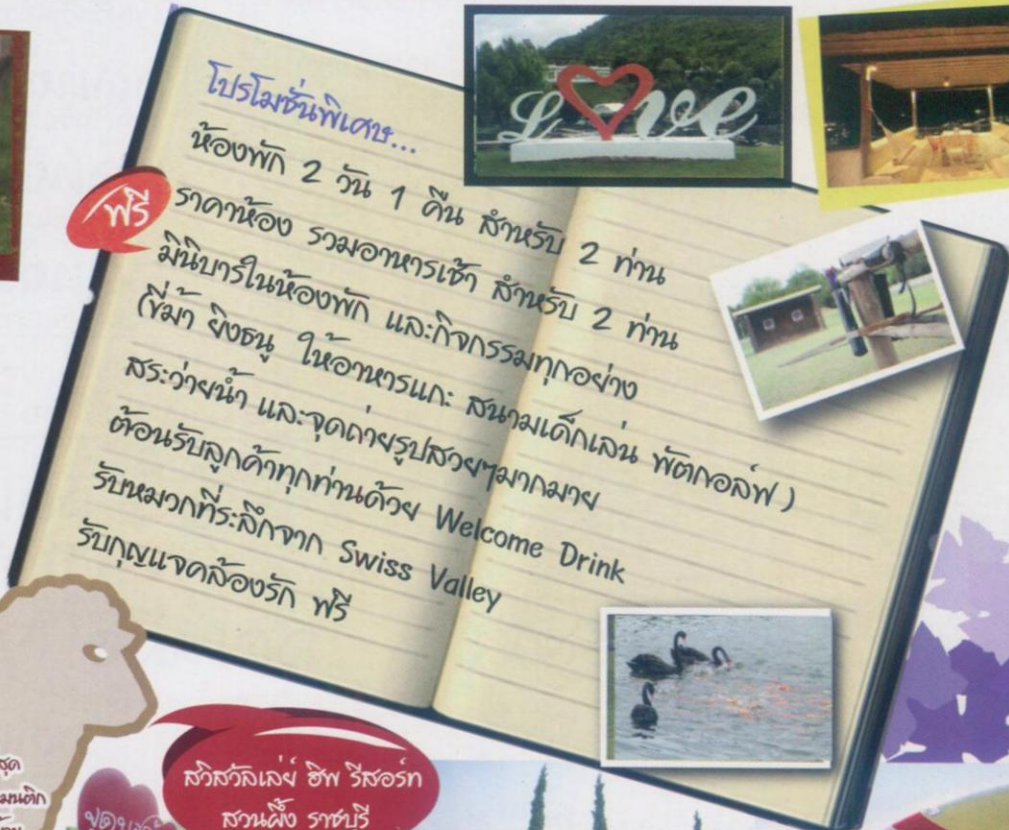 โปรโมชั่นพิเศษ...
ห้องพัก 2 วัน 1 คืน สำหรับ 2 ท่าน
ราคาห้อง รวมอาหารเช้า สำหรับ 2 ท่าน
ฟรี
มินิบาร์ในห้องพัก และกิจกรรมทุกอย่าง
(ขี่ม้า ยิงธนู ให้อาหารแกะ สนามเด็กเล่น พัตกอล์ฟ )
สระว่ายน้ำ และจุดถ่ายรูปสวยๆมากมาย
ต้อนรับลูกค้าทุกท่านด้วย Welcome Drink
รับหมวกที่ระลึกจาก Swiss Valley
รับกุญแจคล้องรัก ฟรี
Love
สวิสวัลเล่ย์ ฮิพ รีสอร์ท
สวนผึ้ง ราชบุรี